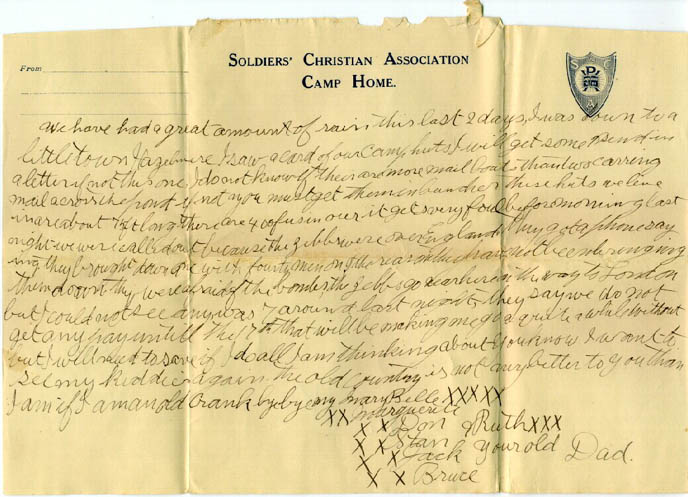 SOLDIERS' CHRISTIAN ASSOCIATION
CAMP HOME.
From
S C A
We have had a great amount of rain this last 2 days, I was down to a
little town Hazelmere I saw a card of our Camp huts I will get some & send in
a letter if not this one I do not know if their are more mail boats than two carring
mail across the pond if not you must get them in bunches these huts we live
in are about long there are 40 of us in our it gets very foul before morning last
night we were called out because the zebbs were over England They got a phone say
ing they brought down one with fourty men on the reason they have not been bringing
them down they were afraid of the bombs the zebbs go near here on the way to London
but could not see any was 7 around last night they say we do not
get any pay untill the 15th that will be making me go quite a while without
but I will need to save if I do all I am thinking about you know I want to
see my kiddies again the old country is not any better to you than
I am if I am an old Crank by bye my Mary Belle XXXXX
XX Marguerite
XX Don & Ruth XXX
XX Stan your old Dad.
XX Jack
XX Bruce